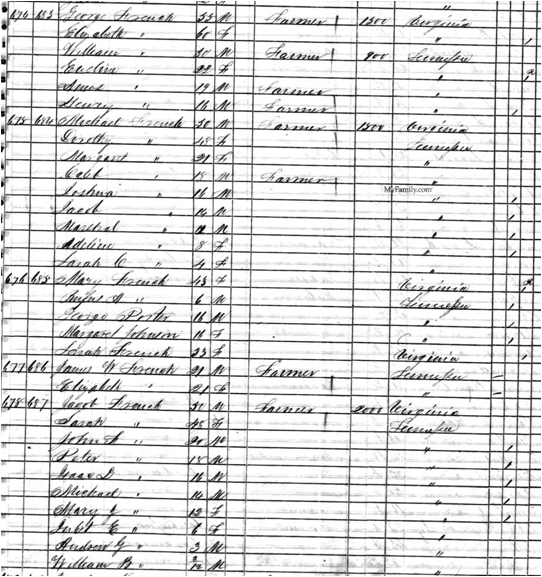 674 683 George French 55 M Farmer 1500 Virginia
Elizabeth " 60 F "
William " 30 M Farmer 900 Tennessee
" 22 F "
Amos " 19 M Farmer "
Henry " 16 M Farmer "
675 684 Michael French 50 M Farmer 1500 Virginia
Dorothy " 48 F Tennessee
Margaret " 21 F "
Caleb " 18 M Farmer "
MyFamily.com
Joshua " 16 M "
Jacob " 14 M "
Marshal " M "
Adeline " 8 F "
Sarah C " 4 F "
676 685 Mary French 43 F Virginia
Rufus A " 6 M Tennessee
George Porter 16 M "
Margaret Johnson 16 F "
Sarah French 23 F Virginia
677 686 James W French 21 M Farmer Tennessee
Elizabeth " 21 F "
678 687 Jacob French 50 M Farmer 2000 Virginia
Sarah " 48 F Tennessee
John " 20 M "
Peter " 18 M "
Isaac D " 16 M "
Michael " 14 M "
Mary J " 12 F "
E " 6 F "
Andrew G " 3 M "
William B " 2/12 M "